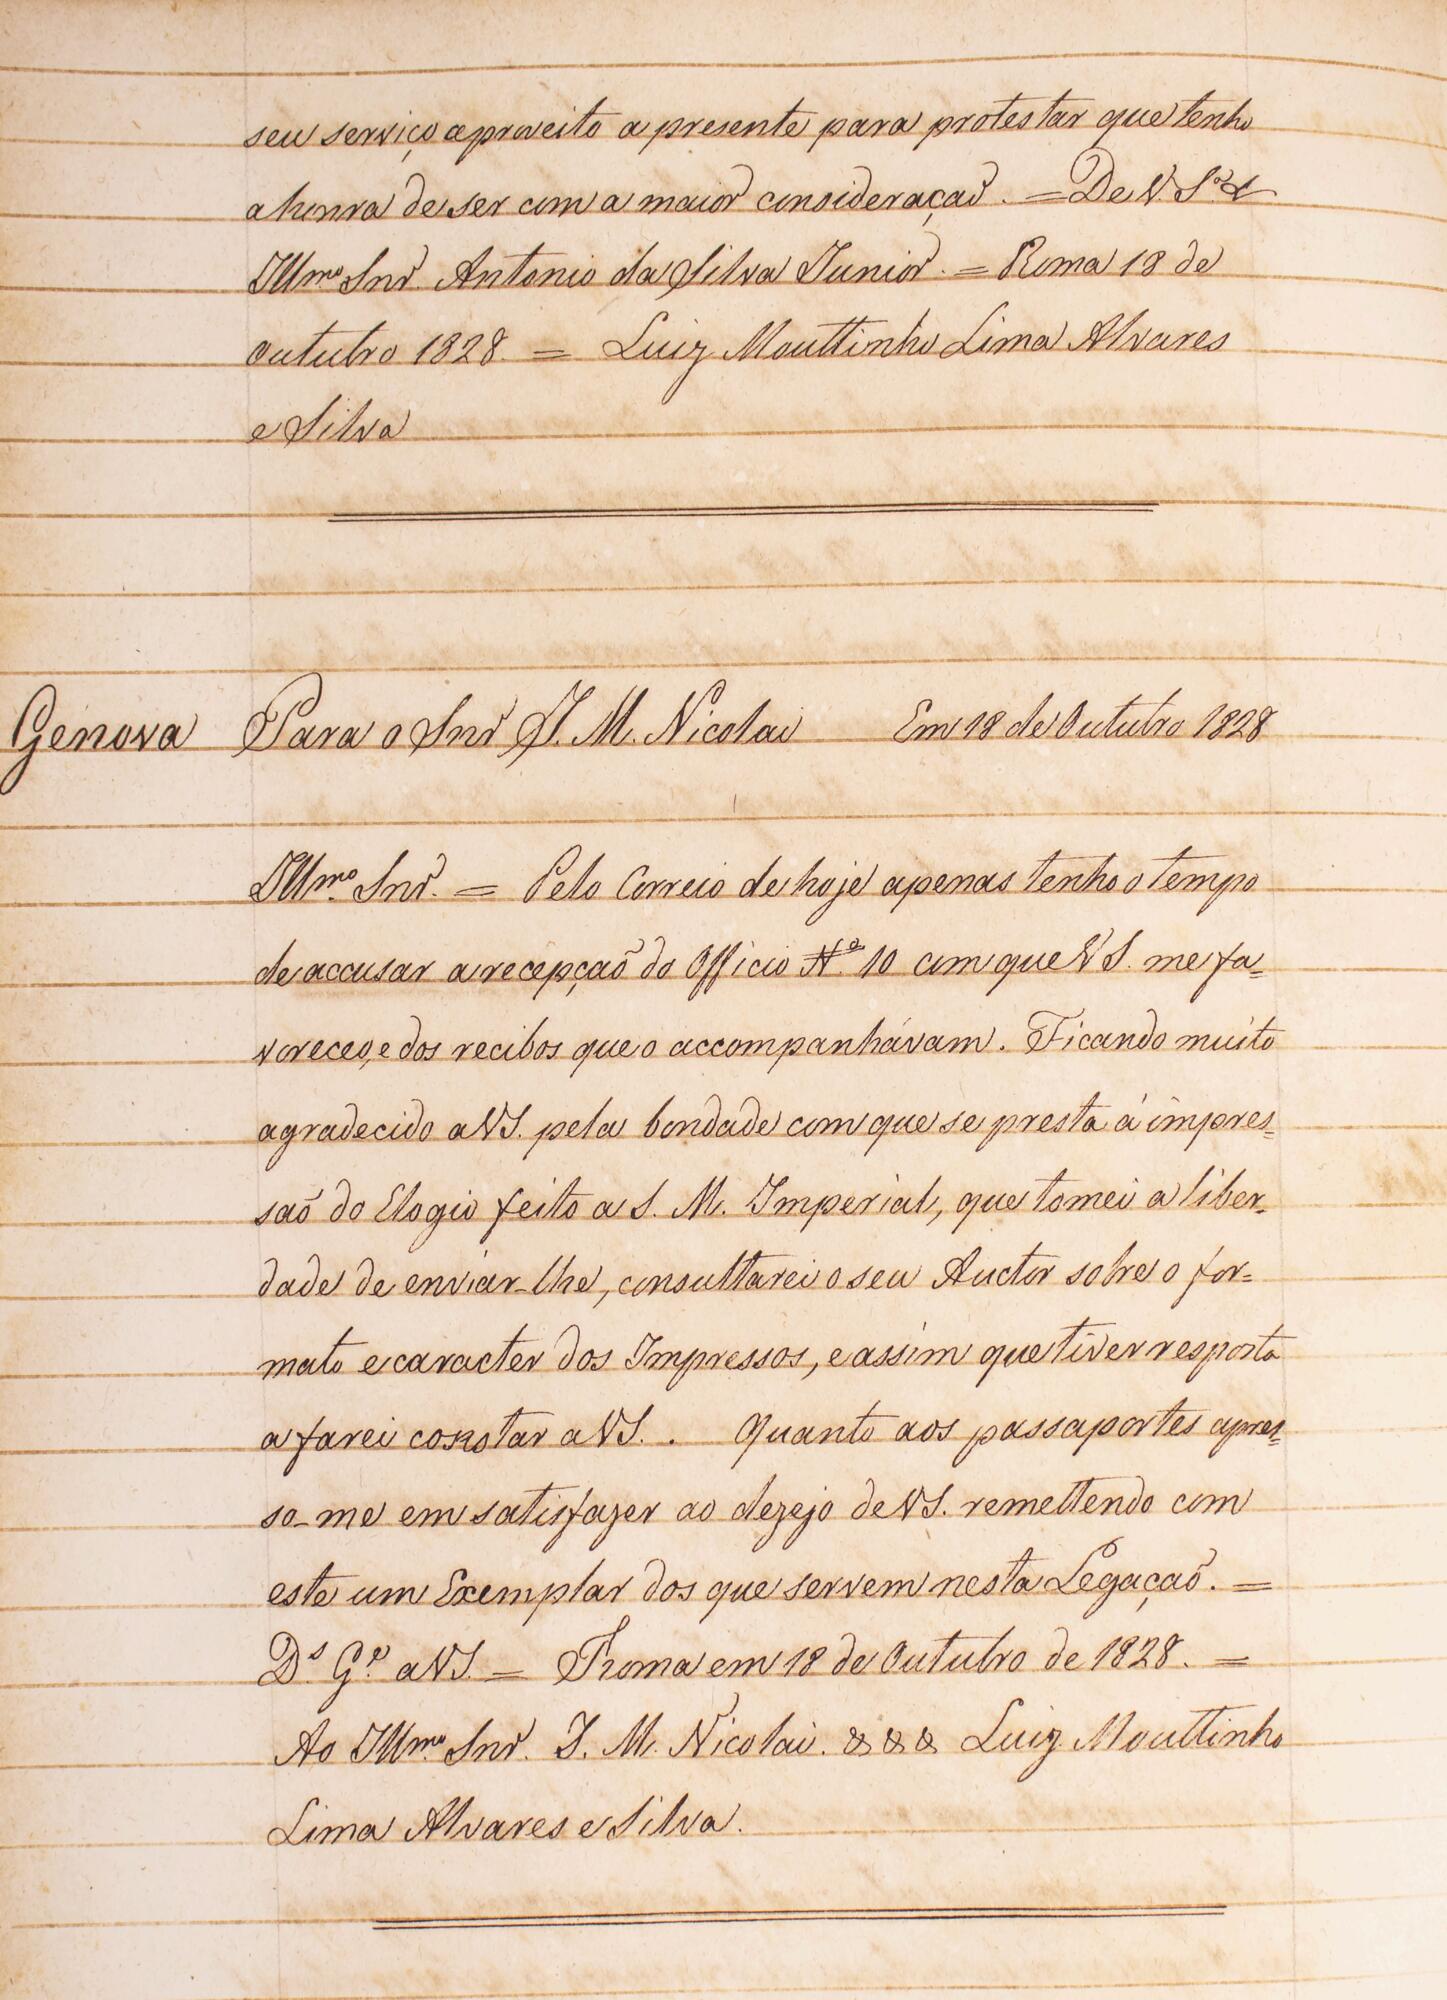 seu serviço aproveito a presente para protestar que tenho
a honra de ser com a maior consideraçaõ. = De V. Sª. &
Illmo. Snr. Antonio da Silva Junior. = Roma 18 de
Outubro 1828 = Luiz Mouttinho Lima Alvares
e Silva
Genova Para o Snr J. M. Nicolai Em 18 de Outubro 1828
Illmo. Snr. = Pelo Correio de hoje apenas tenho o tempo
de accusar a recepçaõ do Officio Nº. 10 com que V S. me fa=
voreceo, e dos recibos que o accompanhávam. Ficando muito
agradecido a V S. pela bondade com que se presta á impres=
saõ do Elogio feito a S. M. Imperial, que tomei a liber=
dade de enviar-lhe, consultarei o seu Auctor sobre o for=
mato e caracter dos Impressos, e assim que tiver resposta
a farei constar a V S. . Quanto aos passaportes apres=
so-me em satisfazer ao dezejo de V S. remettendo com
este um Exemplar dos que servem nesta Legaçaõ. =
Ds. Ge. a V S. = Roma em 18 de Outubro de 1828. =
Ao Illmo. Snr. J. M. Nicolai. & & & Luiz Mouttinho
Lima Alvares e Silva.